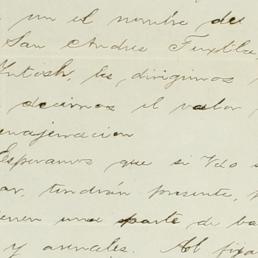 y un el nombre de
San Andres Tuxtla,
Intosh, les dirigimos
decirnos el valor
enajenacion
Esperamos que si Vds
ar, tendrán presente,
ienen una parte de ba
y arenales. Al fija